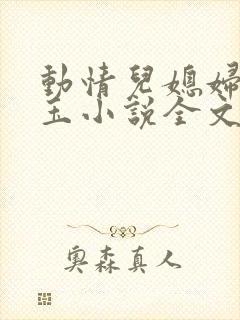 動情兒媳婦
玉小說全文
奧森真人